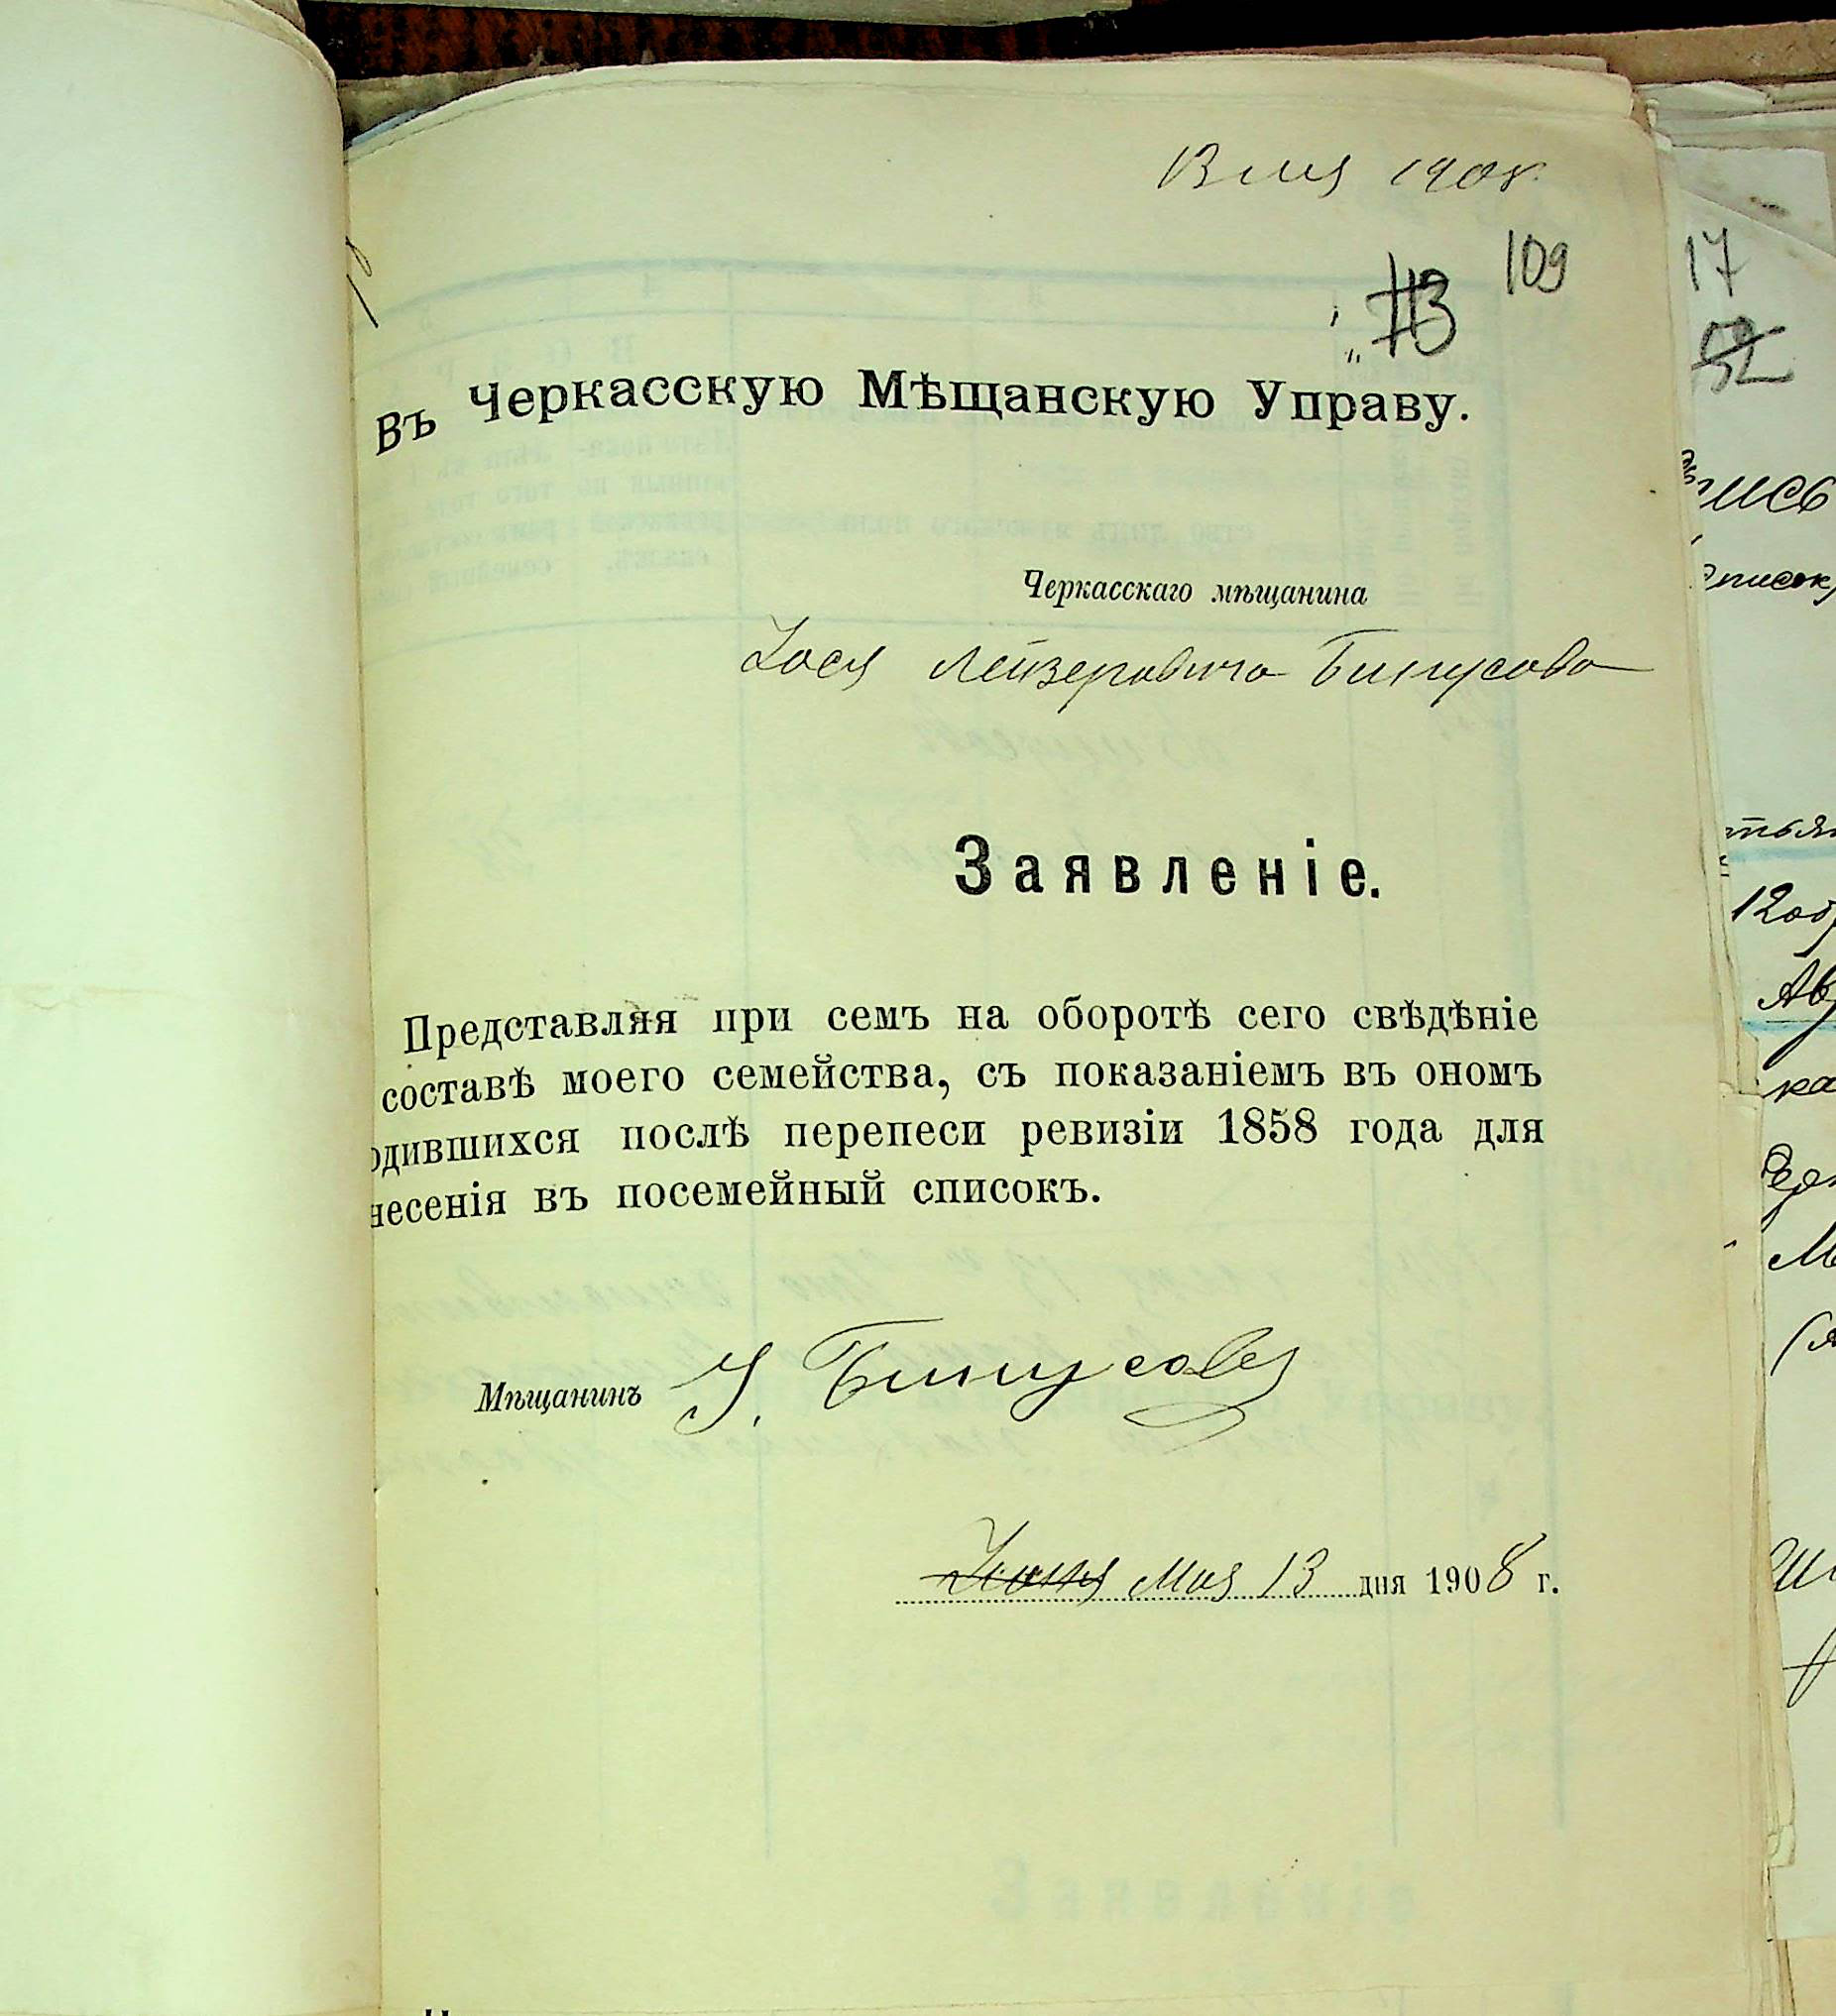 13 мая 1908.
109
113
Въ Черкасскую Мѣщанскую Управу.
Черкасскаго мѣщанина
Іося Лейзеровича Бинусова
Заявленіе.
Представляя при семъ на оборотѣ сего свѣдѣніе
составѣ моего семейства, съ показаніемъ въ ономъ
одившихся послѣ перепеси ревизіи 1858 года для
несенія въ посемейный списокъ.
Мѣщанинъ І. Бинусовъ
Іюня мая 13 дня 1908 г.
17
52